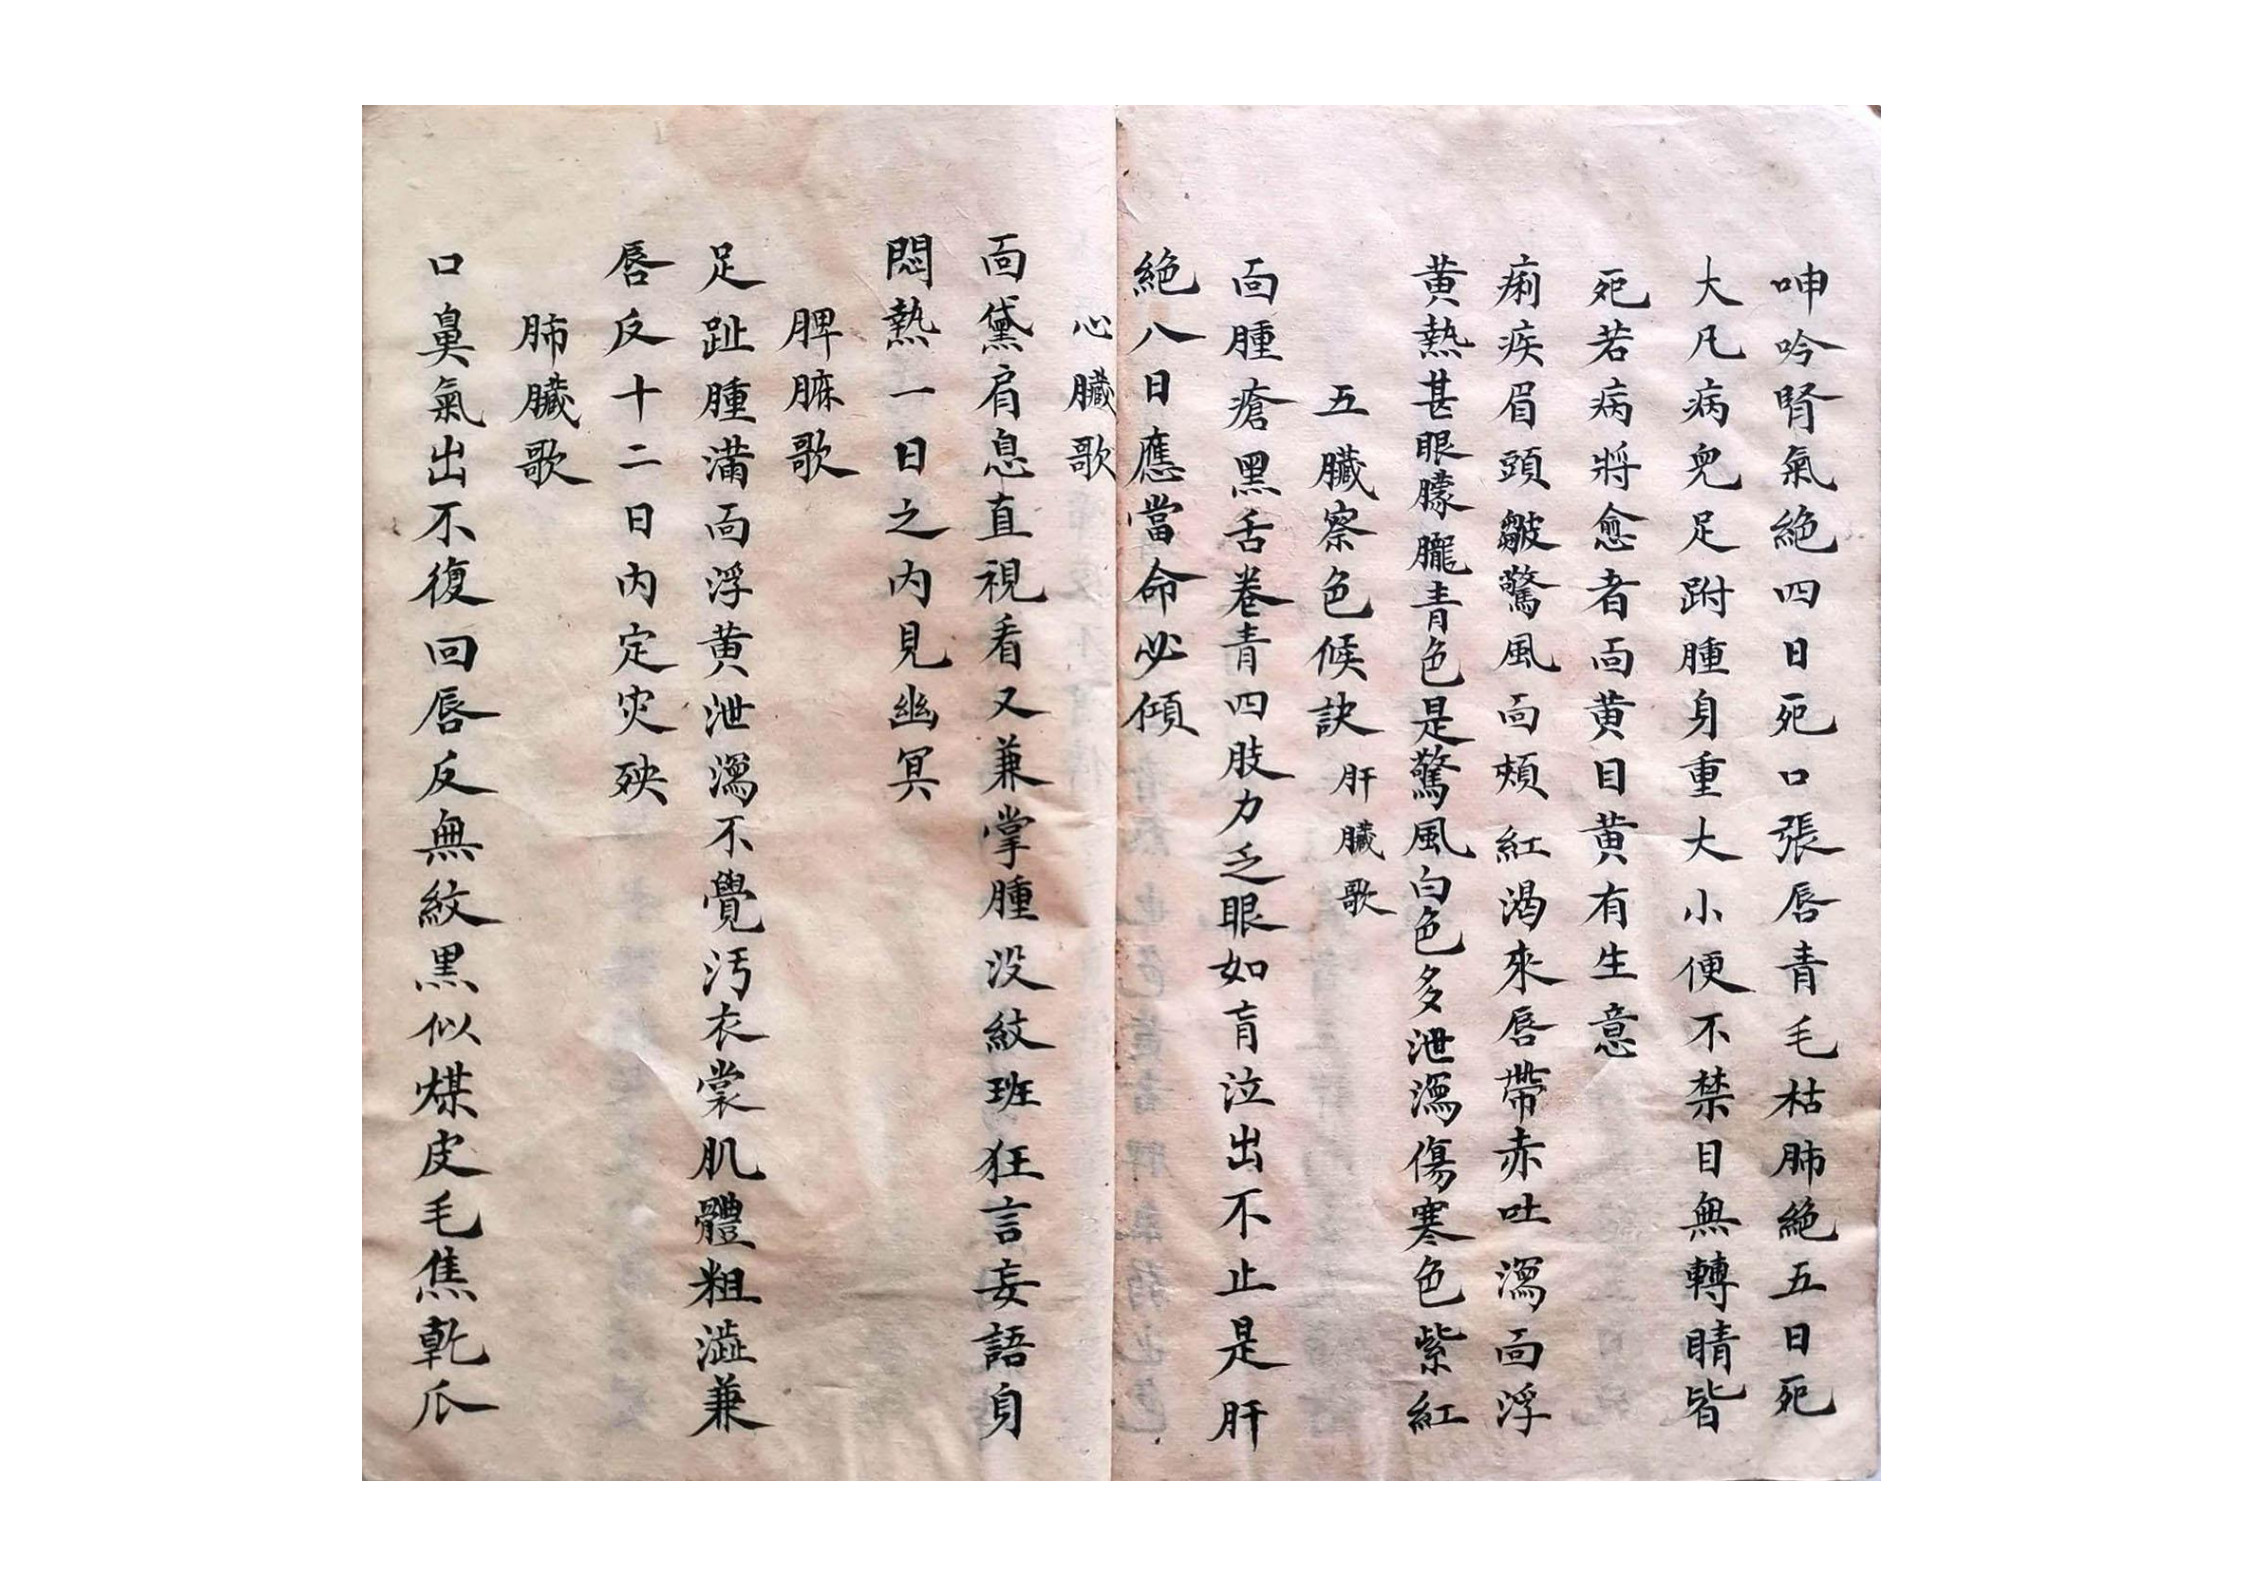 呻吟腎氣絕四日死口張唇青毛枯肺絕五日死
大凡病兒足跗腫身重大小便不禁目無轉睛皆
死若病將愈者面黃目黃有生意
痢疾眉頭皺驚風面頰紅渴來唇帶赤吐瀉面浮
黃熱甚眼朦朧青色是驚風白色多泄瀉傷寒色紫紅
五臟察色候訣肝臟歌
面腫瘡黑舌卷青四肢力乏眼如盲泣出不止是肝
絕八日應當命必傾
心臟歌
面黛肩息直視看又兼掌腫没紋班狂言妄語身
悶熱一日之内見幽冥
脾臓歌
足趾腫滿面浮黃泄瀉不覺汚衣裳肌體粗澁兼
唇反十二日内定灾殃
肺臟歌
口鼻氣出不復回唇反無紋黑似煤皮毛焦乾爪